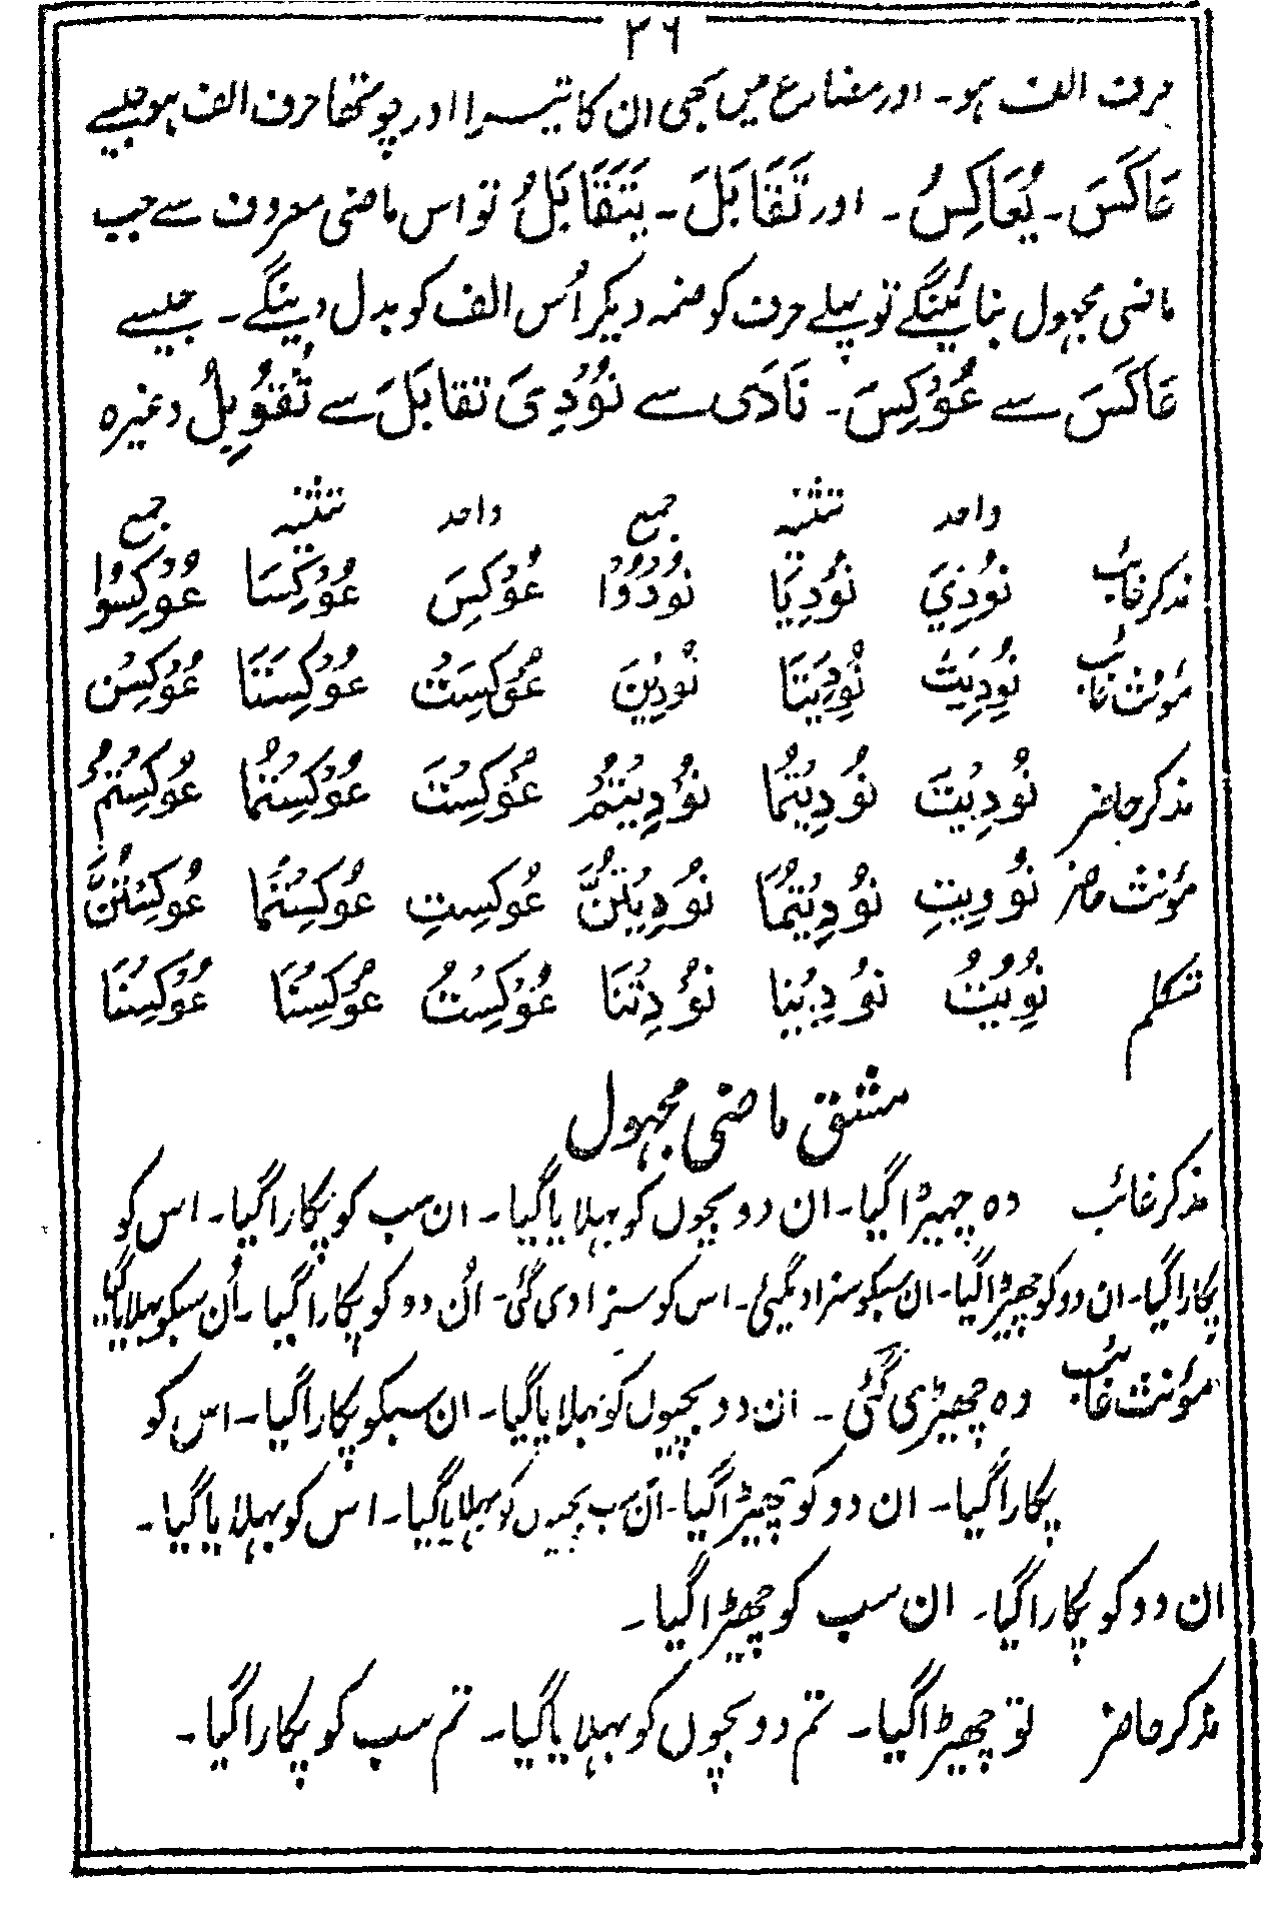 ۲۶
حرف الف ہو۔ اور مضارع میں بھی ان کا تیسرا اور چوتھا حرف الف ہو جیسے
عَاکَسَ۔ یُعَاکِسُ۔ اور تَقَابَلَ۔ یَتَقَابَلُ تو اس ماضی معروف سے جب
ماضی مجہول بنائینگے تو پہلے حرف کو ضمہ دیکر اُس الف کو بدل دینگے۔ جیسے
عَاکَسَ سے عُوْکِسَ۔ نَادَی سے نُوْدِیَ تقابَلَ سے تُقُوْبِلُ وغیرہ
واحد تثنیہ جمع واحد تثنیہ جمع
مذکر غائب نُوْدِيَ نُوْدِیَا نُوْدُوْا عُوْکِسَ عُوْکِسَا عُوْکِسُوْا
مؤنث غائب نُوْدِیَتْ نُوْدِیَتَا نُوْدِیْنَ عُوْکِسَتْ عُوْکِسَتَا عُوْکِسْنَ
مذکر حاضر نُوْدِیْتَ نُوْدِیْتُمَا نُوْدِیْتُمْ عُوْکِسْتَ عُوْکِسْتُمَا عُوْکِسْتُمْ
مؤنث حاضر نُوْدِیْتِ نُوْدِیْتُمَا نُوْدِیْتُنَّ عُوْکِسْتِ عُوْکِسْتُمَا عُوْکِسْتُنَّ
متکلم نُوْیْتُ نُوْدِیْنَا نُوْدِیْنَا عُوْکِسْتُ عُوْکِسْنَا عُوْکِسْنَا
مشق ماضی مجہول
مذکر غائب وہ چھیڑا گیا۔ ان دو بچوں کو بہلایا گیا۔ ان سب کو پکارا گیا۔ اس کو
پکارا گیا۔ ان دو کو چھیڑا گیا۔ ان سبکو سزا دیگئی۔ اس کو سزا دی گئی۔ اُن دو کو پکارا گیا۔ اُن سبکو بہلایا گیا
مؤنث غائب وہ چھیڑی گئی۔ ان دو بچیوں کو بہلایا گیا۔ ان سبکو پکارا گیا۔ اس کو
پکارا گیا۔ ان دو کو چھیڑا گیا۔ ان سب بچیوں کو بہلایا گیا۔ اس کو بہلایا گیا۔
ان دو کو پکارا گیا۔ ان سب کو چھیڑا گیا۔
مذکر حاضر تو چھیڑا گیا۔ تم دو بچوں کو بہلایا گیا۔ تم سب کو پکارا گیا۔